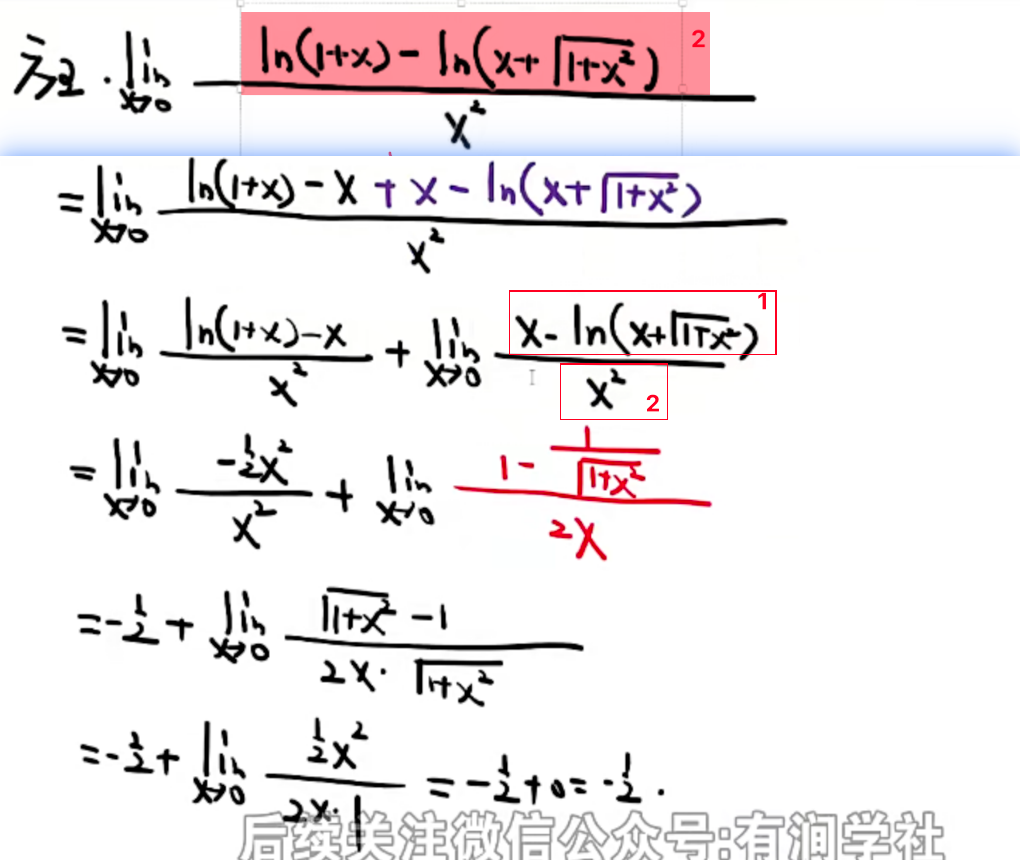 方法2. lim x→0 (ln(1+x) - ln(x+√(1+x²)))/x² 2
= lim x→0 (ln(1+x) - x + x - ln(x+√(1+x²)))/x²
= lim x→0 (ln(1+x) - x)/x² + lim x→0 (x - ln(x+√(1+x²)))/x² 1 2
= lim x→0 (-½x²)/x² + lim x→0 (1 - 1/√(1+x²))/2x
= -½ + lim x→0 (√(1+x²) - 1)/(2x·√(1+x²))
= -½ + lim x→0 (½x²)/(2x·1) = -½ + 0 = -½.
后续关注微信公众号:有润学社